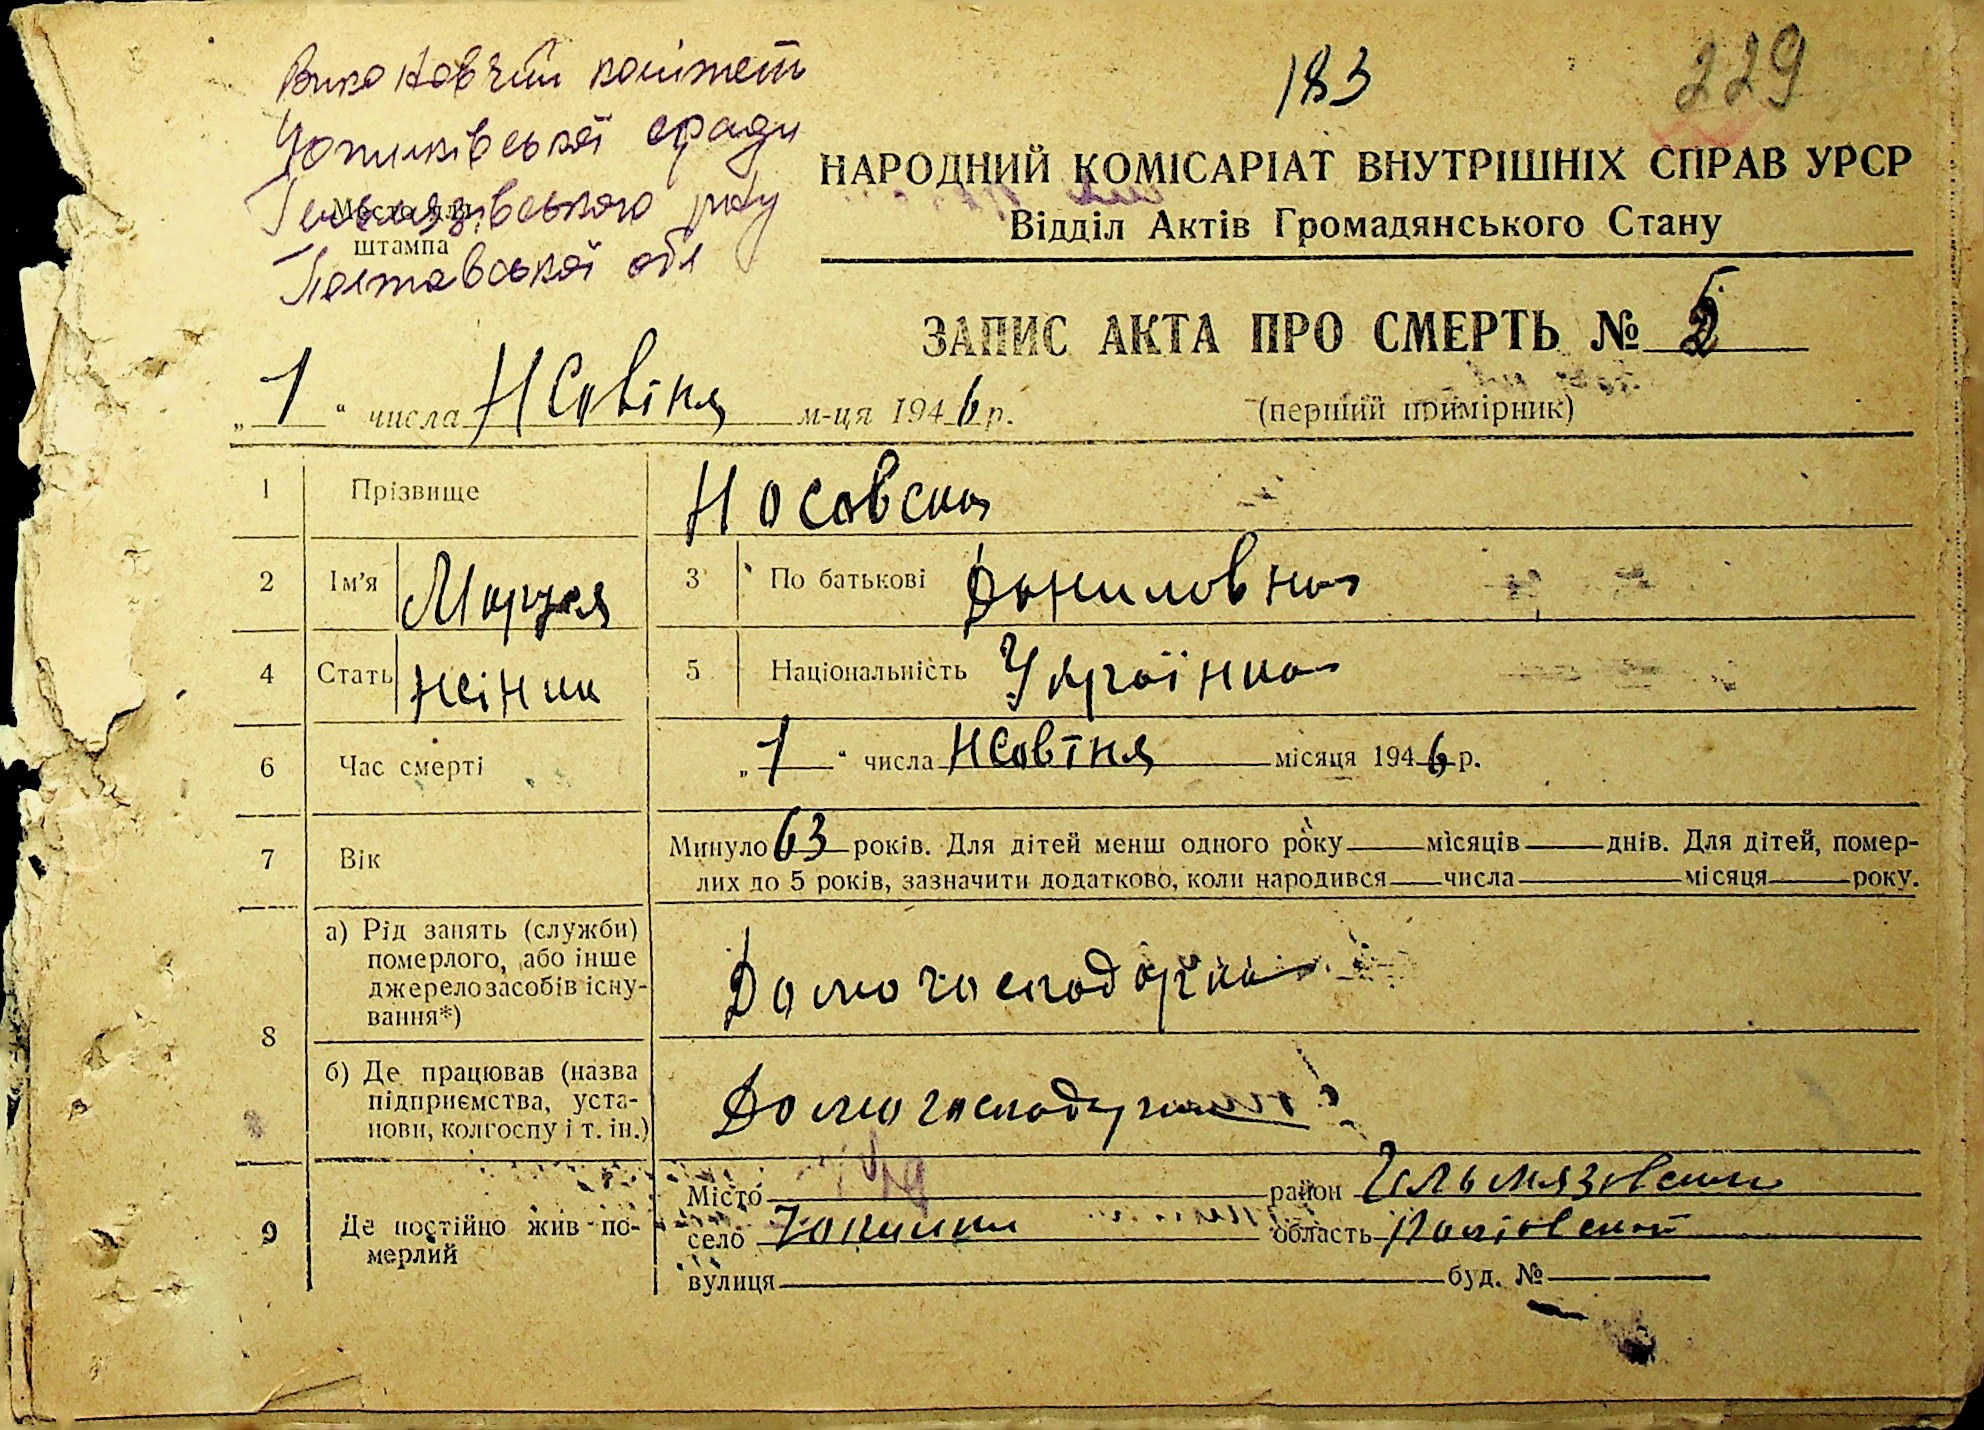 183
229
Виконавчий комітет
Чопилківської с/ради
Гельмязівського р-ну
Полтавської обл
Место для
штампа
НАРОДНИЙ КОМІСАРІАТ ВНУТРІШНІХ СПРАВ УРСР
Відділ Актів Громадянського Стану
ЗАПИС АКТА ПРО СМЕРТЬ №
„ 1 “ числа Жовтня м-ця 1946 р.
(перший примірник)
1 Прізвище Носовска
2 Ім’я Маруся 3 По батькові Даниловна
4 Стать жіника 5 Національність Українка
6 Час смерті „ 1 “ числа Жовтня місяця 1946 р.
7 Вік Минуло 63 років. Для дітей менш одного року місяців днів. Для дітей, помер-
лих до 5 років, зазначити додатково, коли народився числа місяця року.
8 а) Рід занять (служби)
померлого, або інше
джерело засобів існу-
вання*)
Домогосподарка
б) Де працював (назва
підприємства, уста-
нови, колгоспу і т. ін.)
Домогосподарка
9 Де постійно жив по-
мерлий
Місто район Гельмязовский
село Чопилки область Полтавской
вулиця буд. №